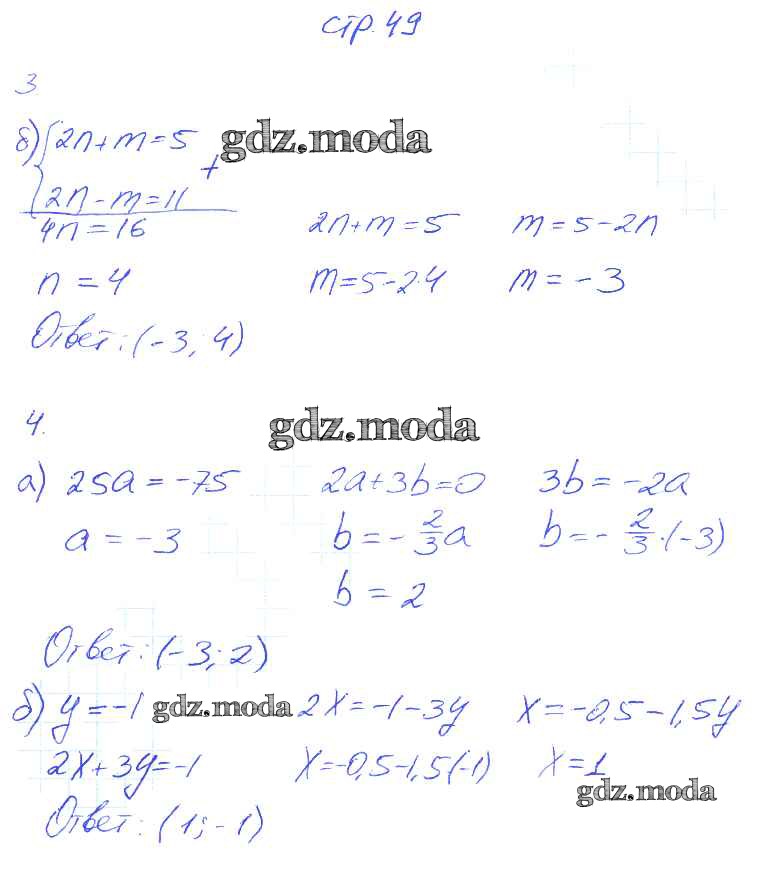 стр. 49
3
б) { 2n + m = 5 gdz.moda
+
2n - m = 11
4n = 16 2n + m = 5 m = 5 - 2n
n = 4 m = 5 - 2·4 m = -3
Ответ: (-3; 4)
4. gdz.moda
а) 25a = -75 2a + 3b = 0 3b = -2a
a = -3 b = -2/3 a b = -2/3 · (-3)
b = 2
Ответ: (-3; 2)
б) y = -1 gdz.moda 2x = -1 - 3y x = -0,5 - 1,5y
2x + 3y = -1 x = -0,5 - 1,5(-1) x = 1
gdz.moda
Ответ: (1; -1)